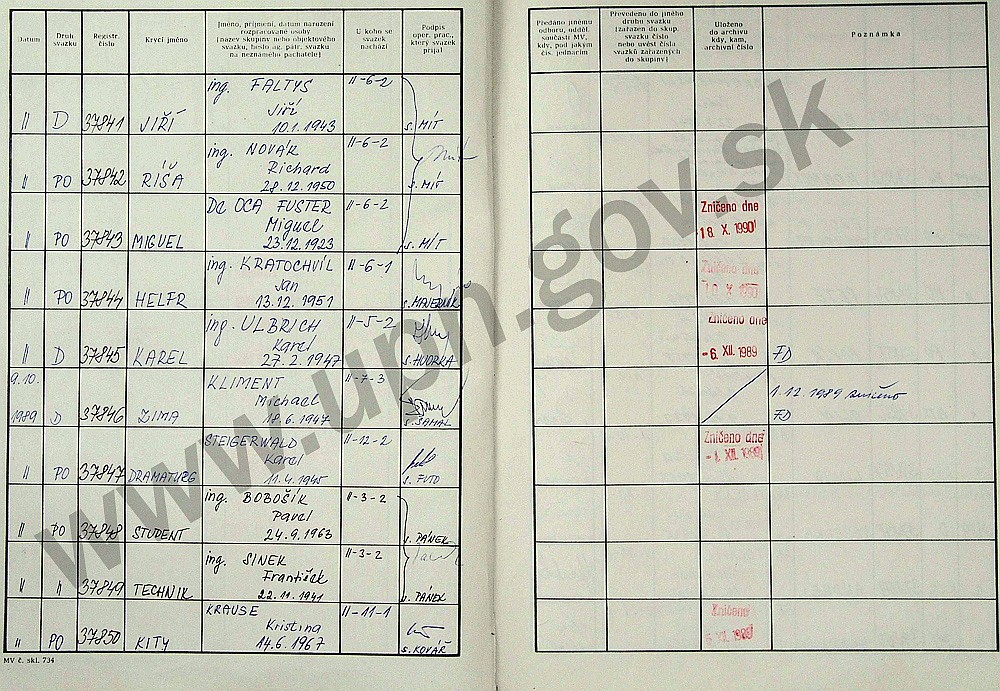 Datum
Druh
svazku
Registr.
číslo
Krycí jméno
Jméno, příjmení, datum narození
rozpracované osoby
(název skupiny nebo objektového
svazku, heslo ag. pátr. svazku
na neznámého pachatele)
U koho se
svazek
nachází
Podpis
oper. prac.,
který svazek
přijal
Předáno jinému
odboru, odděl.
součásti MV,
kdy, pod jakým
čís. jednacím
Převedeno do jiného
druhu svazku
(zařazen do skup.
svazku číslo
nebo uvést čísla
svazků zařazených
do skupiny)
Uloženo
do archivu
kdy, kam,
archivní číslo
Poznámka
ing. FALTYS II-6-2
Jiří
II D 37841 JIŘÍ 10.1.1943 s. MÍT
ing. NOVÁK II-6-2
Richard
II PO 37842 RÍŠA 28.12.1950 s. MÍT
DE OCA FUSTER II-6-2 Zničeno dne
Miguel
II PO 37843 MIGUEL 23.12.1923 s. MÍT 18. X. 1990
ing. KRATOCHVÍL II-6-1 Zničeno dne
Jan
II PO 37844 HELFR 13.12.1951 s. MAJERNÍK
ing. ULBRICH II-5-2 Zničeno dne
Karel
II D 37845 KAREL 27.2.1947 s. HVORKA -6. XII. 1989 FD
9.10. KLIMENT II-7-3
Michael 1.12.1989 zničeno
1989 D 37846 ZIMA 18.6.1947 s. SAMAL FD
STEIGERWALD II-12-2 Zničeno dne
Karel -1. XII. 1989
II PO 37847 DRAMATURG 11.4.1945
ing. BOBOŠÍK II-3-2
Pavel
II PO 37848 STUDENT 24.9.1963 s. PÁNEK
ing. SINEK II-3-2
František
II II 37849 TECHNIK 22.11.1941 s. PÁNEK
KRAUSE II-11-1 Zničeno
Kristina
II PO 37850 KITY 14.6.1967 s. KOVÁŘ
MV č. skl. 734
www.upn.gov.sk